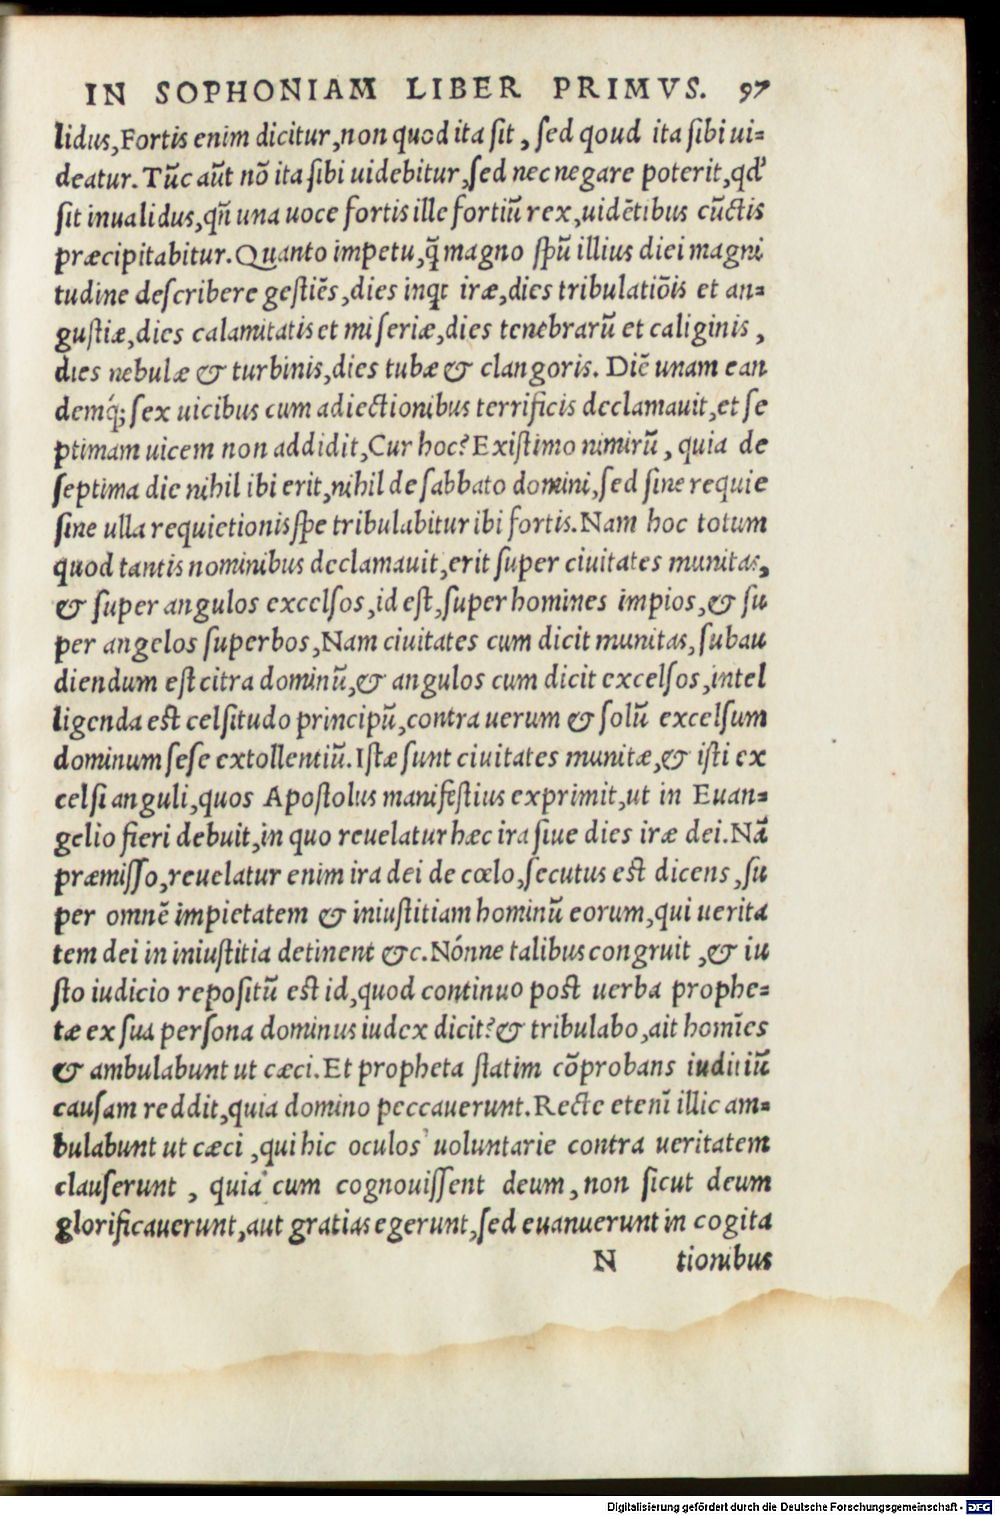 IN SOPHONIAM LIBER PRIMVS. 97
lidus,Fortis enim dicitur,non quod ita sit , sed qoud ita sibi ui=
deatur. Tūc aūt nō ita sibi uidebitur,sed nec negare poterit,qđ
sit inualidus,qñ una uoce fortis ille fortiū rex,uidētibus cūctis
præcipitabitur.Quanto impetu,q̃ magno spū illius diei magni
tudine describere gestiēs,dies inqt iræ,dies tribulatiōis et an=
gustiæ,dies calamitatis et miseriæ,dies tenebrarū et caliginis ,
dies nebulæ & turbinis,dies tubæ & clangoris. Diē unam ean
demq́; sex uicibus cum adiectionibus terrificis declamauit,et se
ptimam uicem non addidit,Cur hoc? Existimo nimirū , quia de
septima die nihil ibi erit,nihil de sabbato domini,sed sine requie
sine ulla requietionis spe tribulabitur ibi fortis.Nam hoc totum
quod tantis nominibus declamauit,erit super ciuitates munitas,
& super angulos excelsos,id est,super homines impios,& su
per angelos superbos,Nam ciuitates cum dicit munitas,subau
diendum est citra dominū,& angulos cum dicit excelsos,intel
ligenda est celsitudo principū,contra uerum & solū excelsum
dominum sese extollentiū.Istæ sunt ciuitates munitæ,& isti ex
celsi anguli,quos Apostolus manifestius exprimit,ut in Euan=
gelio fieri debuit,in quo reuelatur hæc ira siue dies iræ dei.Nā
præmisso,reuelatur enim ira dei de cœlo,secutus est dicens ,su
per omnē impietatem & iniustitiam hominū eorum,qui uerita
tem dei in iniustitia detinent &c.Nónne talibus congruit ,& iu
sto iudicio repositū est id,quod continuo post uerba prophe=
tæ ex sua persona dominus iudex dicit?& tribulabo,ait homīes
& ambulabunt ut cæci.Et propheta statim cōprobans iuditiū
causam reddit,quia domino peccauerunt.Recte etenī illic am=
bulabunt ut cæci ,qui hic oculos uoluntarie contra ueritatem
clauserunt , quia cum cognouissent deum,non sicut deum
glorificauerunt,aut gratias egerunt,sed euanuerunt in cogita
N tionibus
Digitalisierung gefördert durch die Deutsche Forschungsgemeinschaft - DFG